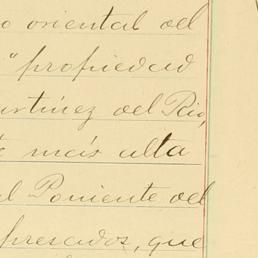 o oriental del
"propiedad
artínez del Rio,
más alta
l Poniente del
presados, que